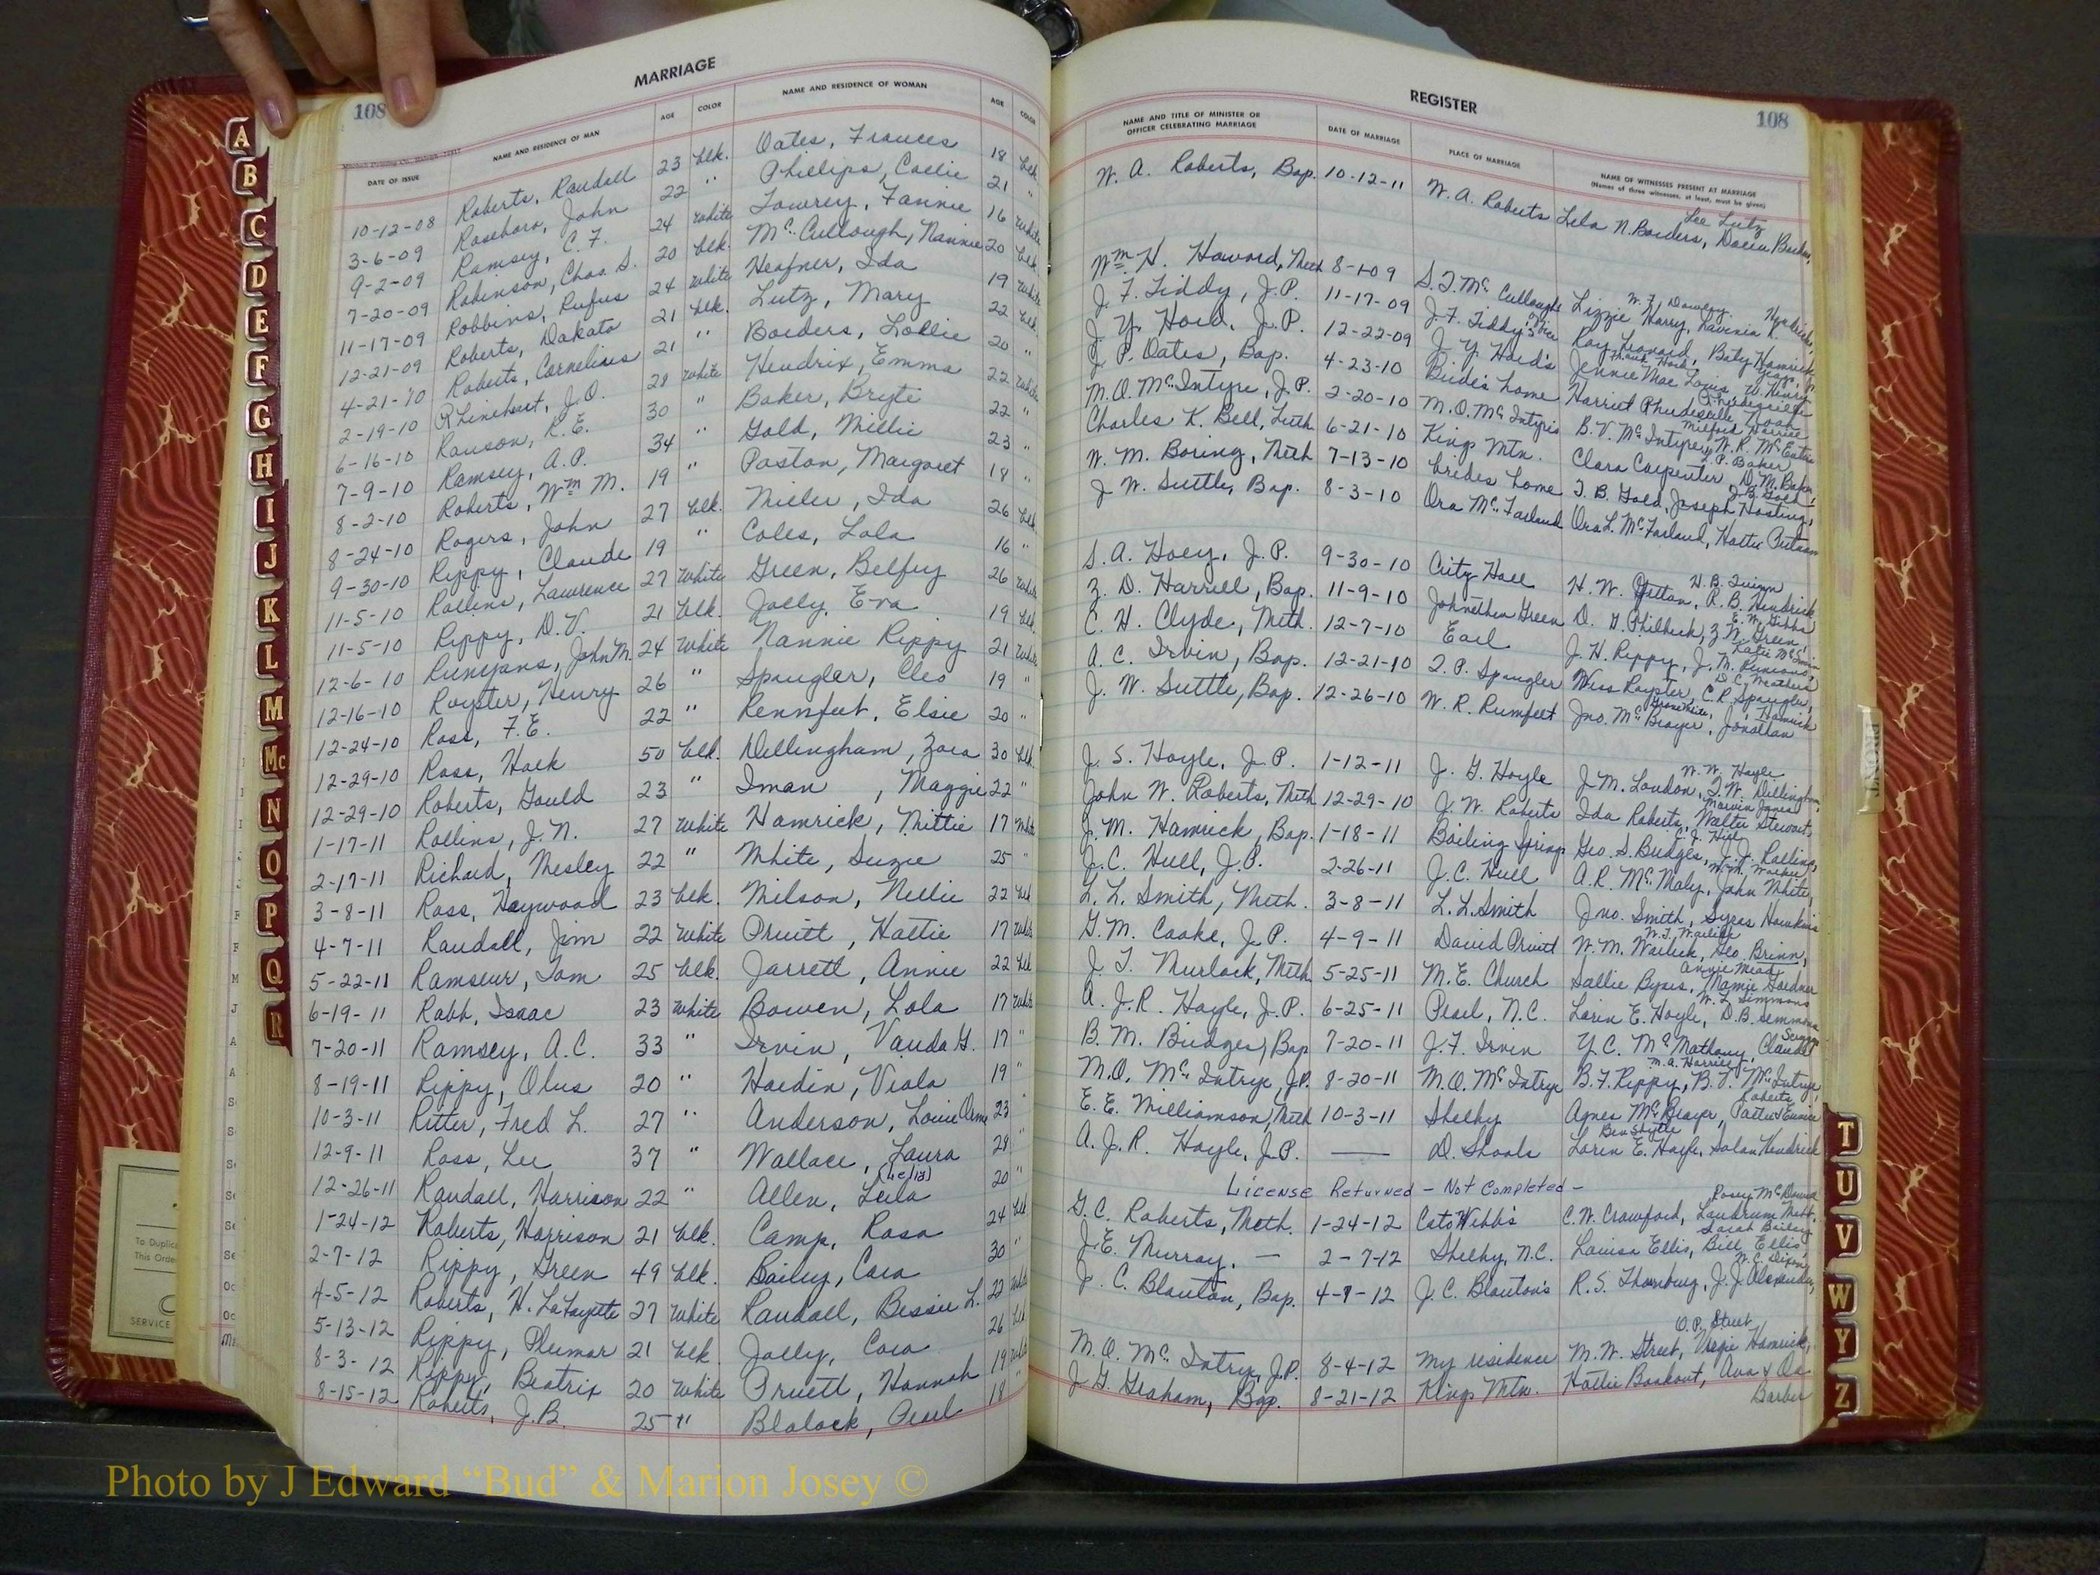 108
MARRIAGE
DATE OF ISSUE NAME AND RESIDENCE OF MAN AGE COLOR NAME AND RESIDENCE OF WOMAN AGE COLOR
10-12-08 Roberts, Randall 23 blk. Oates, Frances 18 blk.
3-6-09 Roseboro, John 22 " Phillips, Callie 21 "
9-2-09 Ramsey, C. F. 24 white Lowrey, Fannie 16 white
7-20-09 Robinson, Chas. S. 20 blk. McCullough, Nannie 20 blk.
11-17-09 Robbins, Rufus 24 white Heafner, Ida 19 white
12-21-09 Roberts, Dakato 21 blk. Lutz, Mary 22 blk.
4-21-'10 Roberts, Cornelius 21 " Borders, Lollie 20 "
2-19-10 Rhinehart, J.O. 28 white Hendrix, Emma 22 white
6-16-10 Rawson, R. E. 30 " Baker, Bryte 22 "
7-9-10 Ramsey, A. P. 34 " Gold, Millie 23 "
8-2-10 Roberts, Wm M. 19 " Poston, Margaret 18 "
8-24-10 Rogers, John 27 blk. Miller, Ida 26 blk.
9-30-10 Rippy, Claude 19 " Coles, Lola 16 "
11-5-10 Rollins, Lawrence 27 white Green, Belfry 26 white
11-5-10 Rippy, D.V. 21 blk. Jolly, Eva 19 blk.
12-6-10 Runyans, John M. 24 white Nannie Rippy 21 white
12-16-10 Royster, Henry 26 " Spangler, Cleo 19 "
12-24-10 Ross, F.E. 22 " Rennfeet, Elsie 20 "
12-29-10 Ross, Hack 50 blk. Dellingham, Zora 30 blk.
12-29-10 Roberts, Gould 23 " Iman, Maggie 22 "
1-17-11 Rollins, J.N. 27 white Hamrick, Mittie 17 white
2-17-11 Richard, Wesley 22 " White, Suzie 25 "
3-8-11 Ross, Haywood 23 blk. Wilson, Nellie 22 blk
4-7-11 Randall, Jim 22 white Pruitt, Hattie 17 white
5-22-11 Ramseur, Tom 25 blk. Jarrett, Annie 22 blk
6-19-11 Rabb, Isaac 23 white Bowen, Lola 17 white
7-20-11 Ramsey, A.C. 33 " Irvin, Vanda G. 17 "
8-19-11 Rippy, Olus 20 " Hardin, Viola 19 "
10-3-11 Ritter, Fred L. 27 " Anderson, Louie Orme 23 "
12-9-11 Ross, Lee 37 " Wallace, Laura 28 "
12-26-11 Randall, Harrison 22 " Allen, Lula 20 "
1-24-12 Roberts, Harrison 21 blk. Camp, Rosa 24 blk
2-7-12 Rippy, Green 49 blk. Bailey, Cora 30 "
4-5-12 Roberts, H. LaFayette 27 white Randall, Bessie L. 22 white
5-13-12 Rippy, Plumar 21 blk. Jolly, Cora 26 blk
8-3-12 Rippy, Beatrix 20 white Pruett, Hannah 19 white
8-15-12 Roberts, J.B. 25 " Blalock, Pearl 18 "
REGISTER
108
NAME AND TITLE OF MINISTER OR OFFICER CELEBRATING MARRIAGE DATE OF MARRIAGE PLACE OF MARRIAGE NAME OF WITNESSES PRESENT AT MARRIAGE
(Names of three witnesses, at least, must be given)
Lee Lutz
W. A. Roberts, Bap. 10-12-11 W. A. Roberts Lela N. Borders,
Wm H. Howard, Meth 8-1-09 S. T. McCullough Lizzie Harry, Lavenia K.
J. F. Tiddy, J.P. 11-17-09 J. F. Tiddy's Roy Leonard,
J. Y. Hord, J.P. 12-22-09 J. Y. Hord's Jennie Mae
J. P. Oates, Bap. 4-23-10 Bride's home Harriet
M. O. McIntyre, J.P. 2-20-10 M. O. McIntyre's B. V. McIntyre,
Charles K. Bell, Luth. 6-21-10 Kings Mtn. Clara Carpenter, D. M. Baker,
W. M. Boring, Meth 7-13-10 brides home T. B. Gold, Joseph Hosting,
J. W. Suttle, Bap. 8-3-10 Ora McFarland Ora L. McFarland, Hattie Putnam
S. A. Hoey, J.P. 9-30-10 City Hall H. W.
Z. D. Harrill, Bap. 11-9-10 Johnethen Green D. G. Philbeck, Z. N. Green
C. H. Clyde, Meth. 12-7-10 Earl J. H. Rippy, J. M. Runions,
A. C. Irvin, Bap. 12-21-10 T. P. Spangler Wess Royster, C. R. Spangler,
J. W. Suttle, Bap. 12-26-10 W. R. Rumfelt Jno. McBrayer, Jonathan Hamrick
W. W. Hoyle
J. S. Hoyle, J.P. 1-12-11 J. G. Hoyle J. M. London, T. W. Dellingham
Marvin Jones
John W. Roberts, Meth 12-29-10 J. W. Roberts Ida Roberts, Walter Stewart,
J. M. Hamrick, Bap. 1-18-11 Boiling Springs Geo. S. Budges, J. J. Rollins,
J. C. Hull, J.P. 2-26-11 J. C. Hull A. R. McMaly, John White,
L. L. Smith, Meth. 3-8-11 L. L. Smith Jno. Smith, Syras Hawkins
G. M. Cooke, J.P. 4-9-11 David Pruitt W. M. Warlick, Geo Brinn,
Annie Mead
J. T. Murlock, Meth 5-25-11 M. E. Church Sallie Byers, Mamie Gardner
W. L. Simmons
A. J. R. Hoyle, J.P. 6-25-11 Pearl, N.C. Lorin E. Hoyle, D. B. Simmons
B. M. Bridges, Bap 7-20-11 J. F. Irvin Y. C. McMathany, Claude Scruggs
M. A. Harrill
M. O. McIntrye, JP. 8-20-11 M. O. McIntrye B. F. Rippy, B. V. McIntrye
Roberts
E. E. Williamson, Meth 10-3-11 Shelby Agnes McBrayer, Pattie & Eunice
A. J. R. Hoyle, J.P. — D. Shoals Lorin E. Hoyle, Solan Hendrick
License Returned – Not Completed –
Rosey McDowd
G. C. Roberts, Meth. 1-24-12 Cato Webb's C. W. Crawford, Landrum Webb,
Sarah Bailey
J. E. Murray, — 2-7-12 Shelby, N.C. Louisa Ellis, Bill Ellis,
W. C. Dixon
J. C. Blanton, Bap. 4-7-12 J. C. Blanton's R. S. Thornburg, J. J. Alexander,
O. P. Street
M. O. McIntry, J.P. 8-4-12 My residence M. W. Street, Virgie Hamrick,
J. G. Graham, Bap. 8-21-12 Kings Mtn. Hattie Bookout, Ava & Oa
Barber
A
B
C
D
E
F
G
H
I
J
K
L
M
Mc
N
O
P
Q
R
T
U
V
W
Y
Z
To Duplica
This Order
SERVICE
Photo by J Edward “Bud” & Marion Josey ©